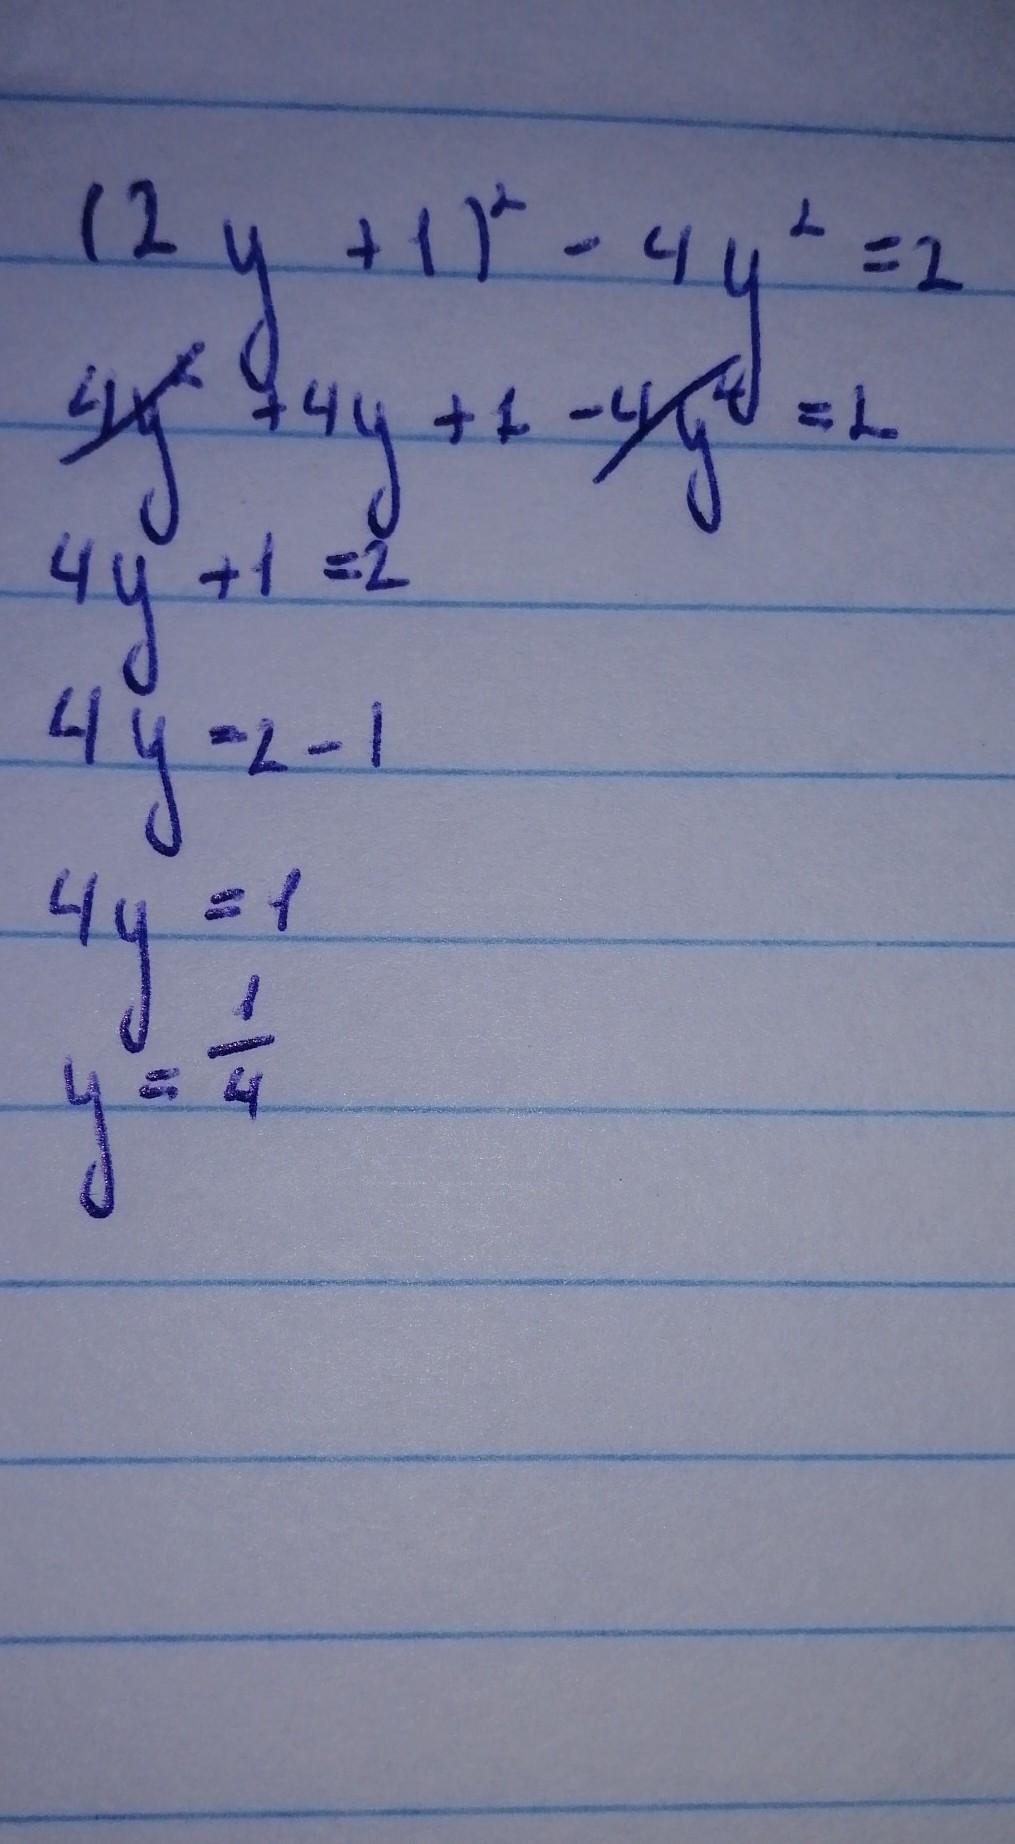 (2y+1)² - 4y² = 2
4y² + 4y + 1 - 4y² = 2
4y + 1 = 2
4y = 2 - 1
4y = 1
y = 1/4